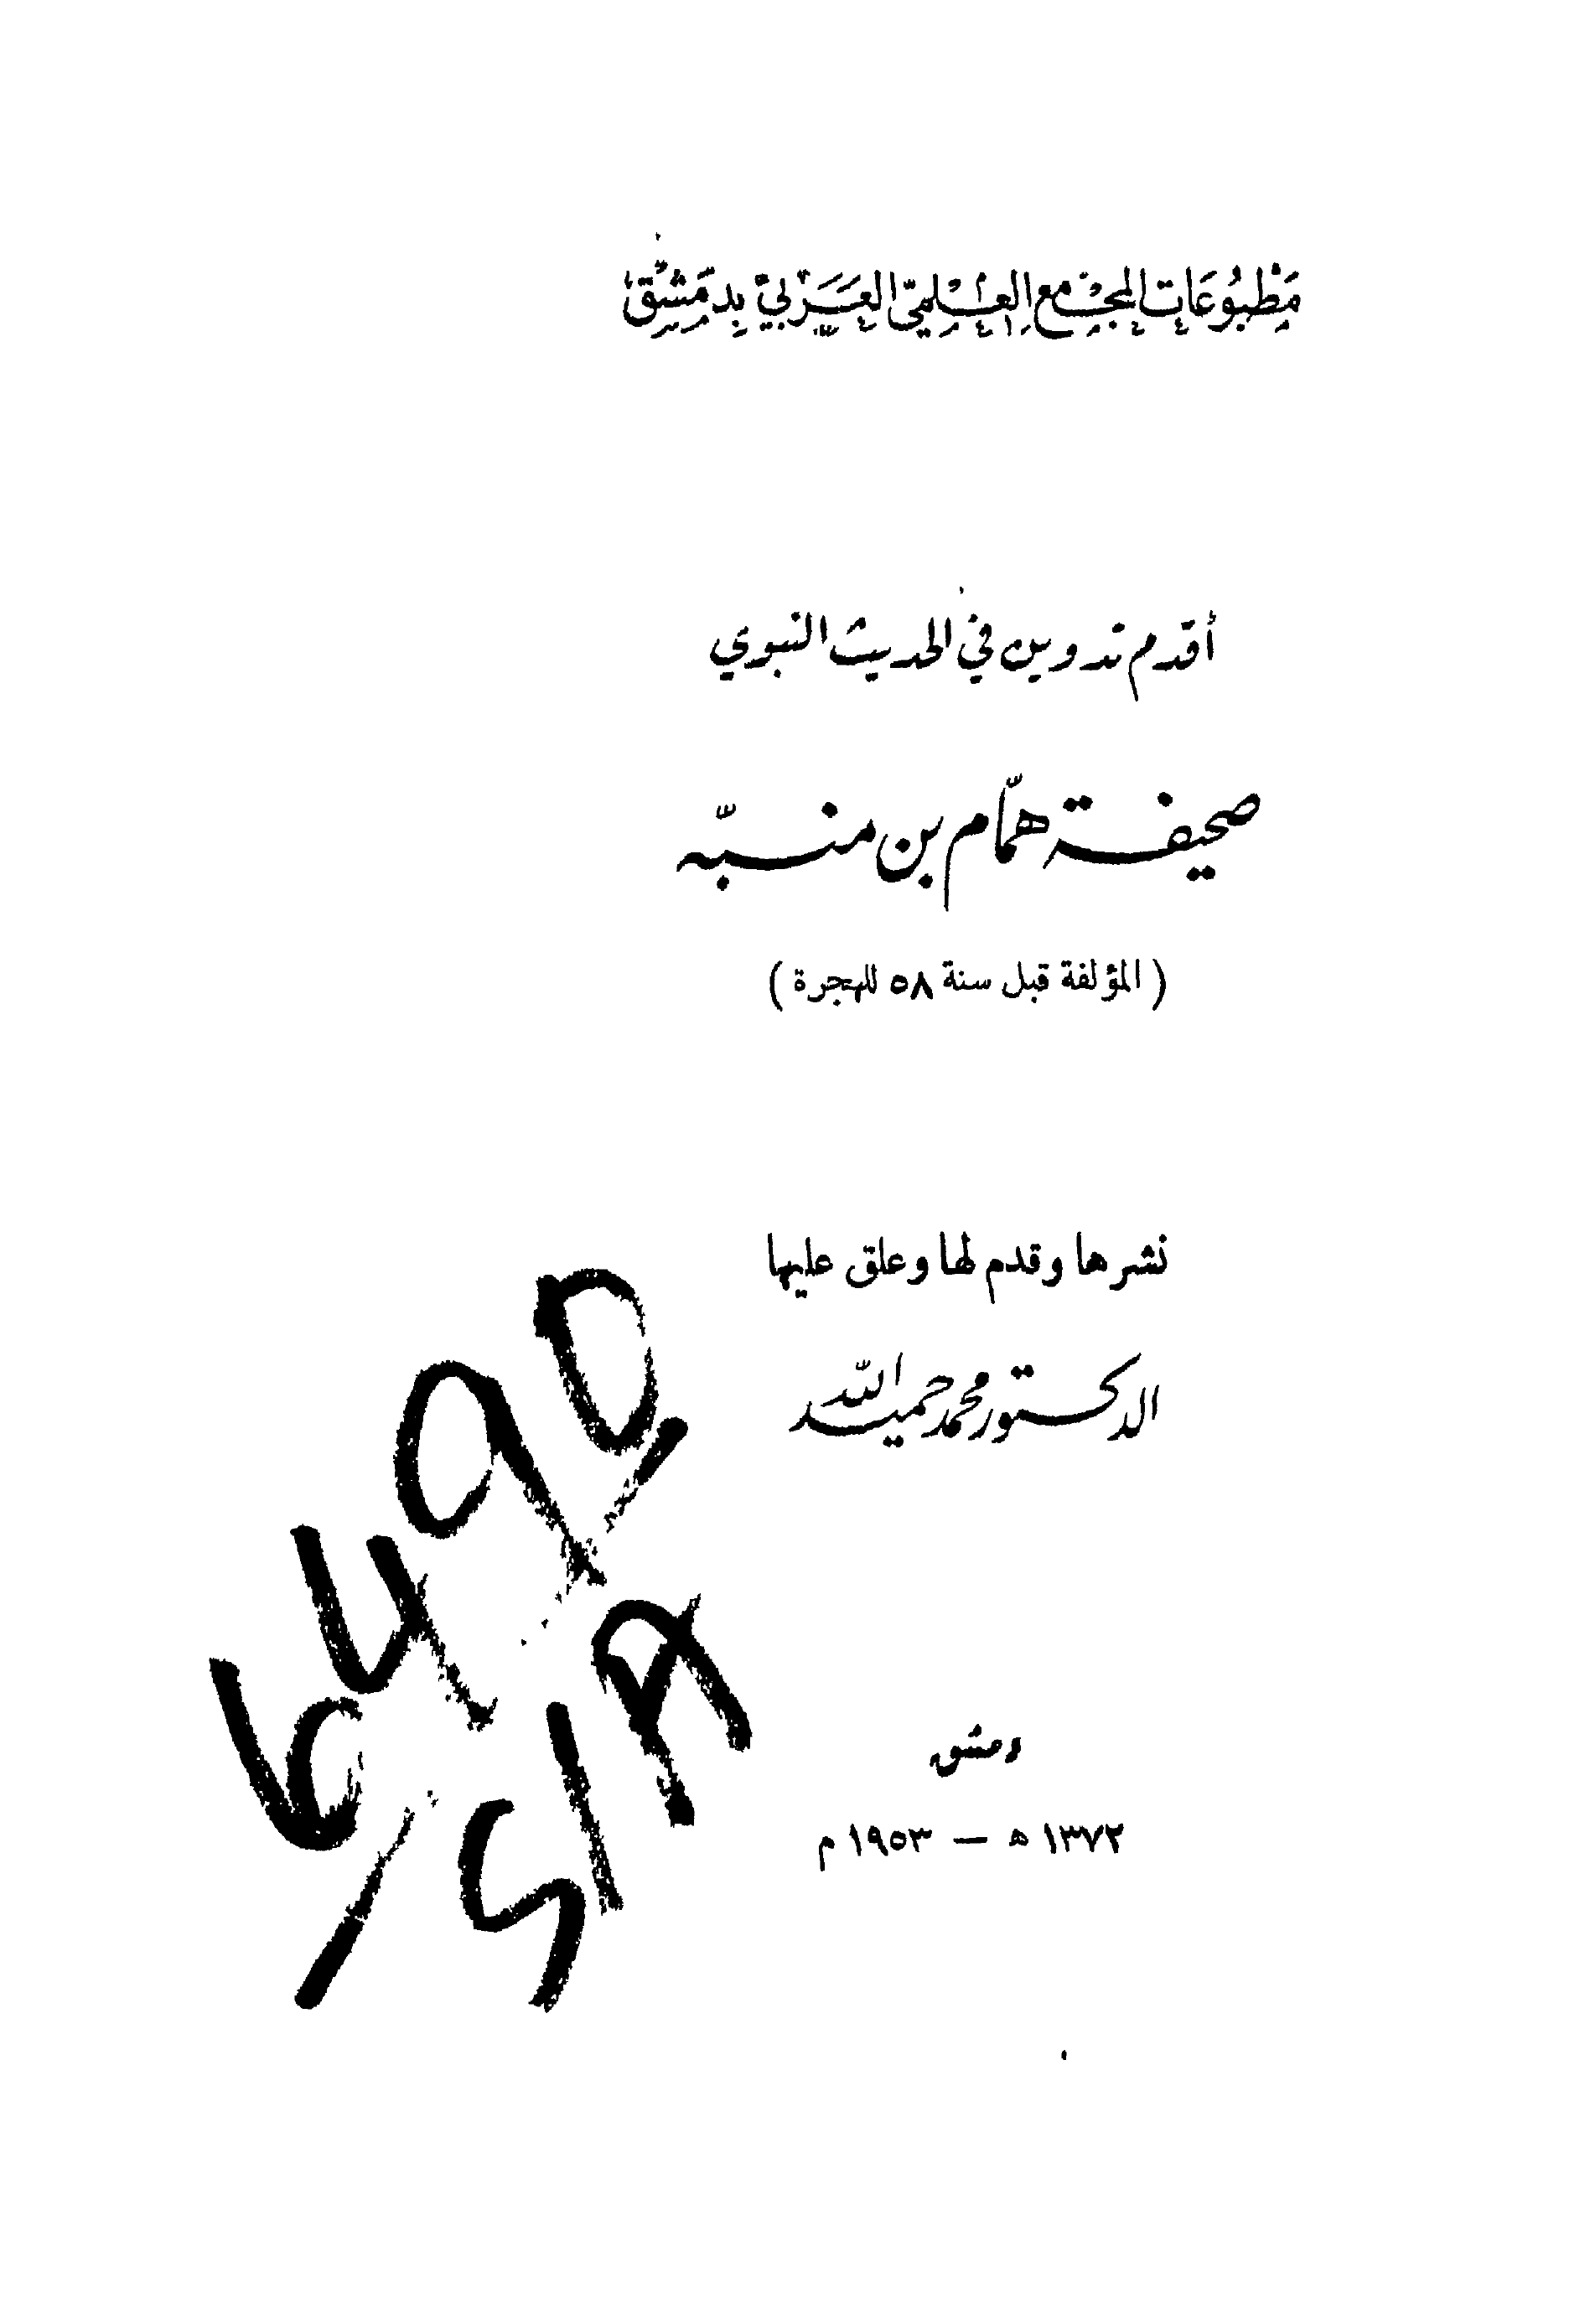 مَطْبُوعَات المَجْمَع العِلْمِيّ العَرَبيّ بِدِمَشْق
أقدم تدوين في الحديث النبوي
صحيفة همّام بن منبّه
( المؤلفة قبل سنة ٥٨ للهجرة )
نشرها وقدم لها وعلق عليها
الدكتور محمد حميد الله
دمشق
١٣٧٢ ه – ١٩٥٣ م